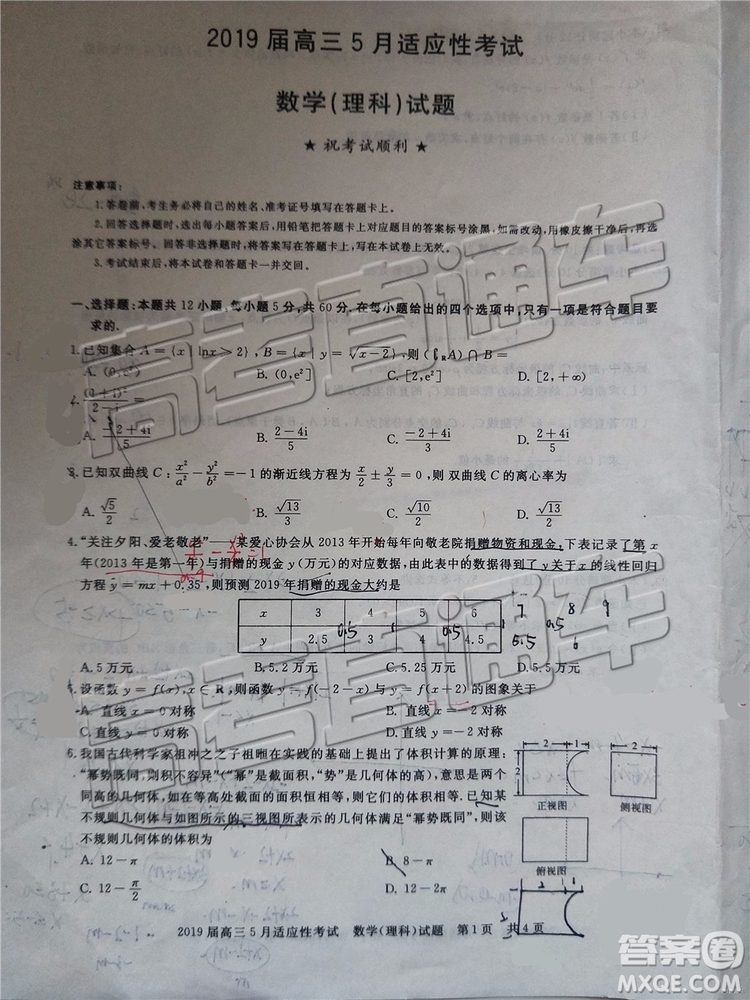 2019届高三5月适应性考试
数学(理科)试题
★ 祝考试顺利 ★
注意事项:
1.答卷前,考生务必将自己的姓名、准考证号填写在答题卡上。
2.回答选择题时,选出每小题答案后,用铅笔把答题卡上对应题目的答案标号涂黑,如需改动,用橡皮擦干净后,再选
涂其它答案标号。回答非选择题时,将答案写在答题卡上,写在本试卷上无效。
3.考试结束后,将本试卷和答题卡一并交回。
一、选择题:本题共12小题,每小题5分,共60分.在每小题给出的四个选项中,只有一项是符合题目要
求的.
1.已知集合 A={x | lnx>2}, B={x | y=√(x-2)},则(∁RA)∩B=
A. (0,e²] B. (0,e²] C. [2,e²] D. [2,+∞)
2. (1+i)²/(2-i)=
A. (-2+4i)/5 B. (2-4i)/5 C. (-2+4i)/3 D. (2+4i)/5
3.已知双曲线 C: x²/a²-y²/b²=-1的渐近线方程为 x/2±y/3=0,则双曲线C的离心率为
A. √5/2 B. √13/3 C. √10/2 D. √13/2
4.“关注夕阳、爱老敬老”——某爱心协会从2013年开始每年向敬老院捐赠物资和现金,下表记录了第x
年(2013年是第一年)与捐赠的现金y(万元)的对应数据,由此表中的数据得到了y关于x的线性回归
方程 y=mx+0.35,则预测2019年捐赠的现金大约是
x 3 4 5 6 7 8 9
y 2.5 3 4 4.5 5.5 6
0.5 0.5 0.5
A.5万元 B.5.2万元 C.5.25万元 D.5.5万元
5.设函数 y=f(x),x∈R,则函数 y=f(-2-x)与y=f(x+2)的图象关于
A. 直线x=0对称 B. 直线x=-2对称
C.直线y=0对称 D.直线y=-2对称
6.我国古代科学家祖冲之之子祖暅在实践的基础上提出了体积计算的原理:
“幂势既同,则积不容异”(“幂”是截面积,“势”是几何体的高),意思是两个
同高的几何体,如在等高处截面的面积恒相等,则它们的体积相等.已知某
不规则几何体与如图所示的三视图所表示的几何体满足“幂势同”,则该
不规则几何体的体积为
A. 12-π B. 8-π
C. 12-π/2 D. 12-2π
2 1 2
2
正视图 侧视图
俯视图
2019届高三5月适应性考试 数学(理科)试题 第1页 共4页
高考直通车
高考直通车
答案圈
MXQE.COM